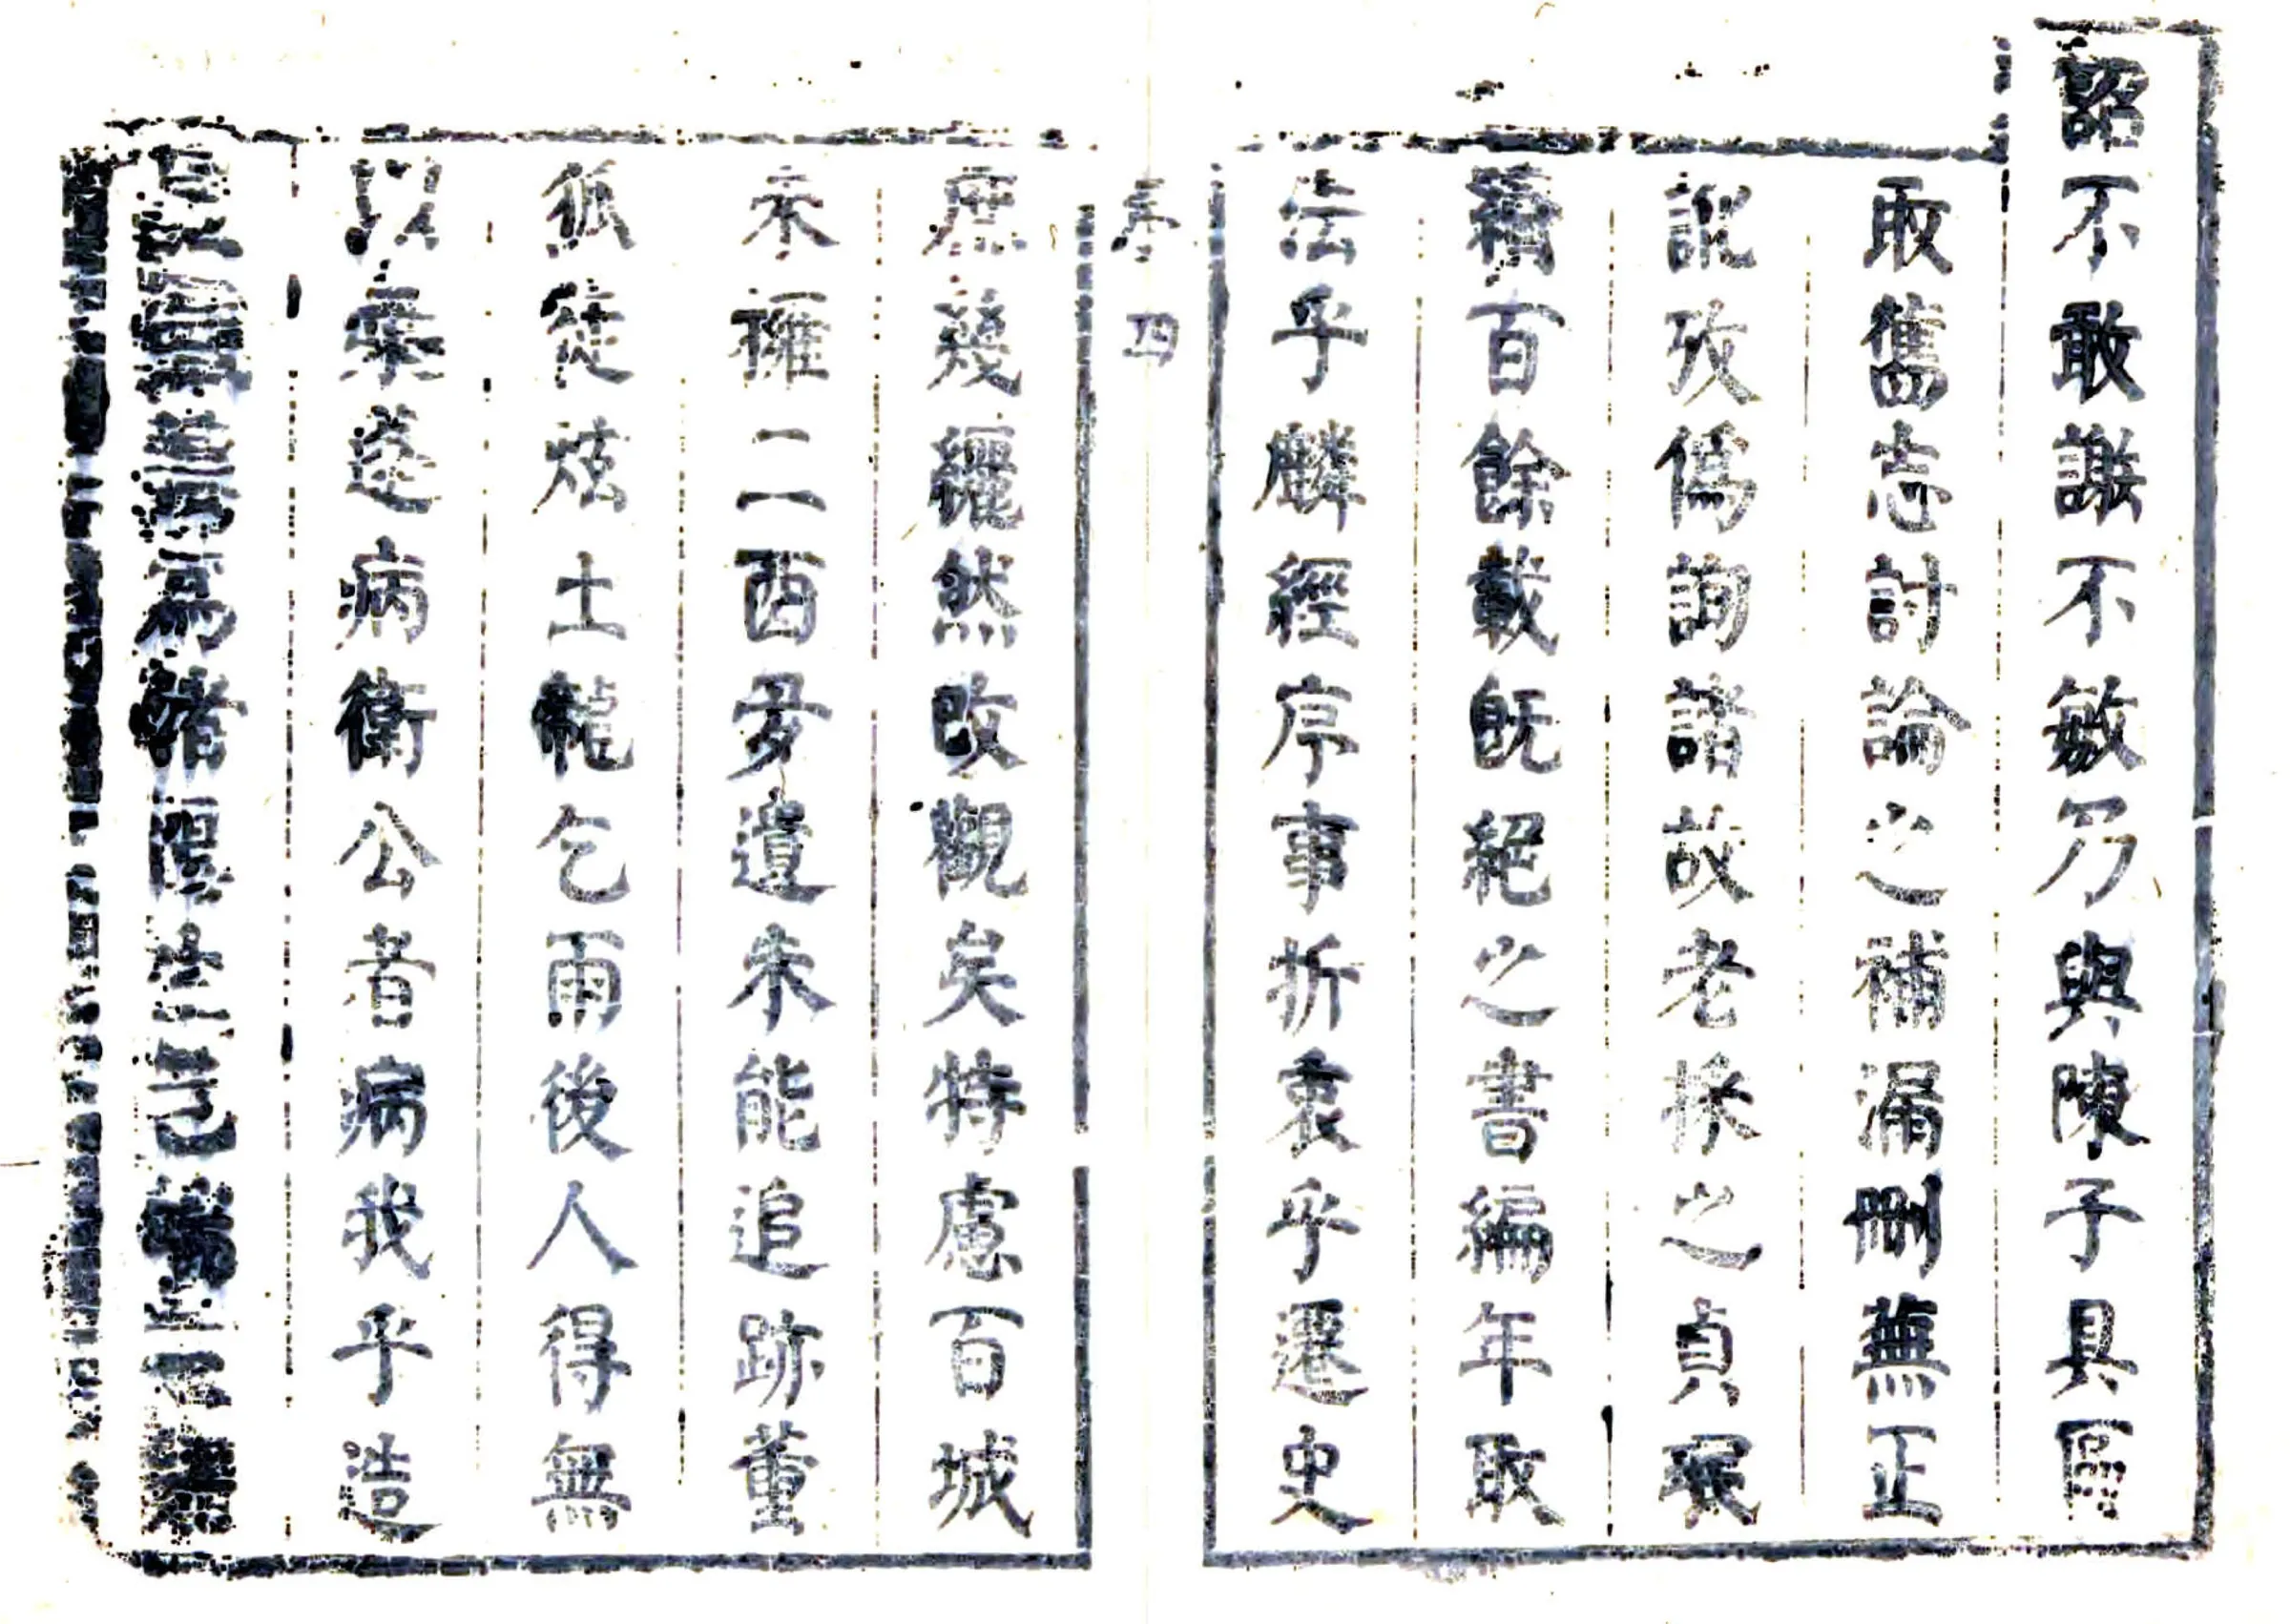 詔不敢謝不敏乃與陳子具區
取舊志討論之補漏刪蕪正
訛攷偽詢諸故老採之貞珉
續百餘載旣絕之書編年取
法乎麟經序事折衷乎遷史
序 四
庶幾纚然改觀矣特慮百城
未擁二酉多遺未能追跡董
狐徒炫土龍乞雨後人得無
以棄蓬病衛公者病我乎造
爲諸